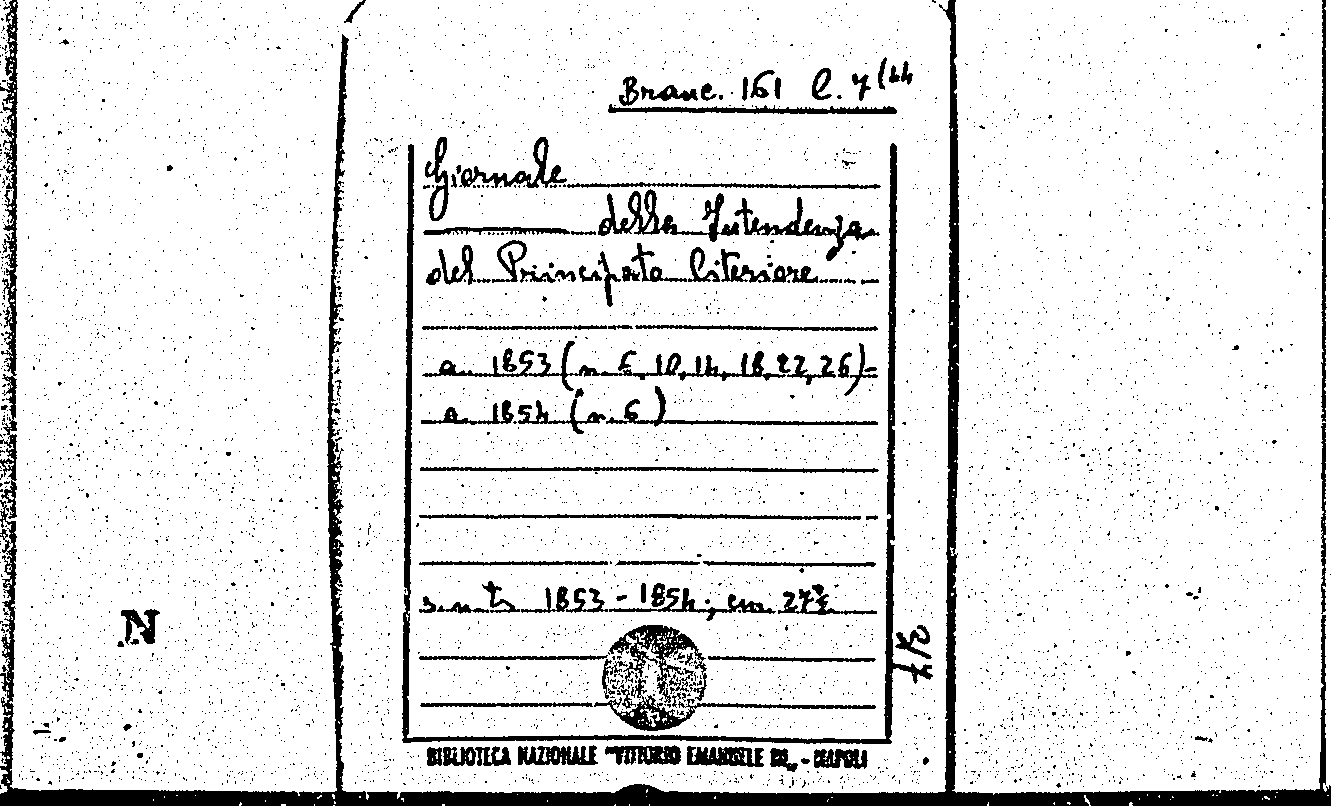 Branc. 161 C. 7(44
Giornale
della Intendenza
del Principato Citeriore
a. 1853 (n. 6, 10, 14, 18, 22, 26)-
a. 1854 (n. 6)
s.n.t. 1853 - 1854; cm. 27½
N
BIBLIOTECA NAZIONALE "VITTORIO EMANUELE III" - NAPOLI